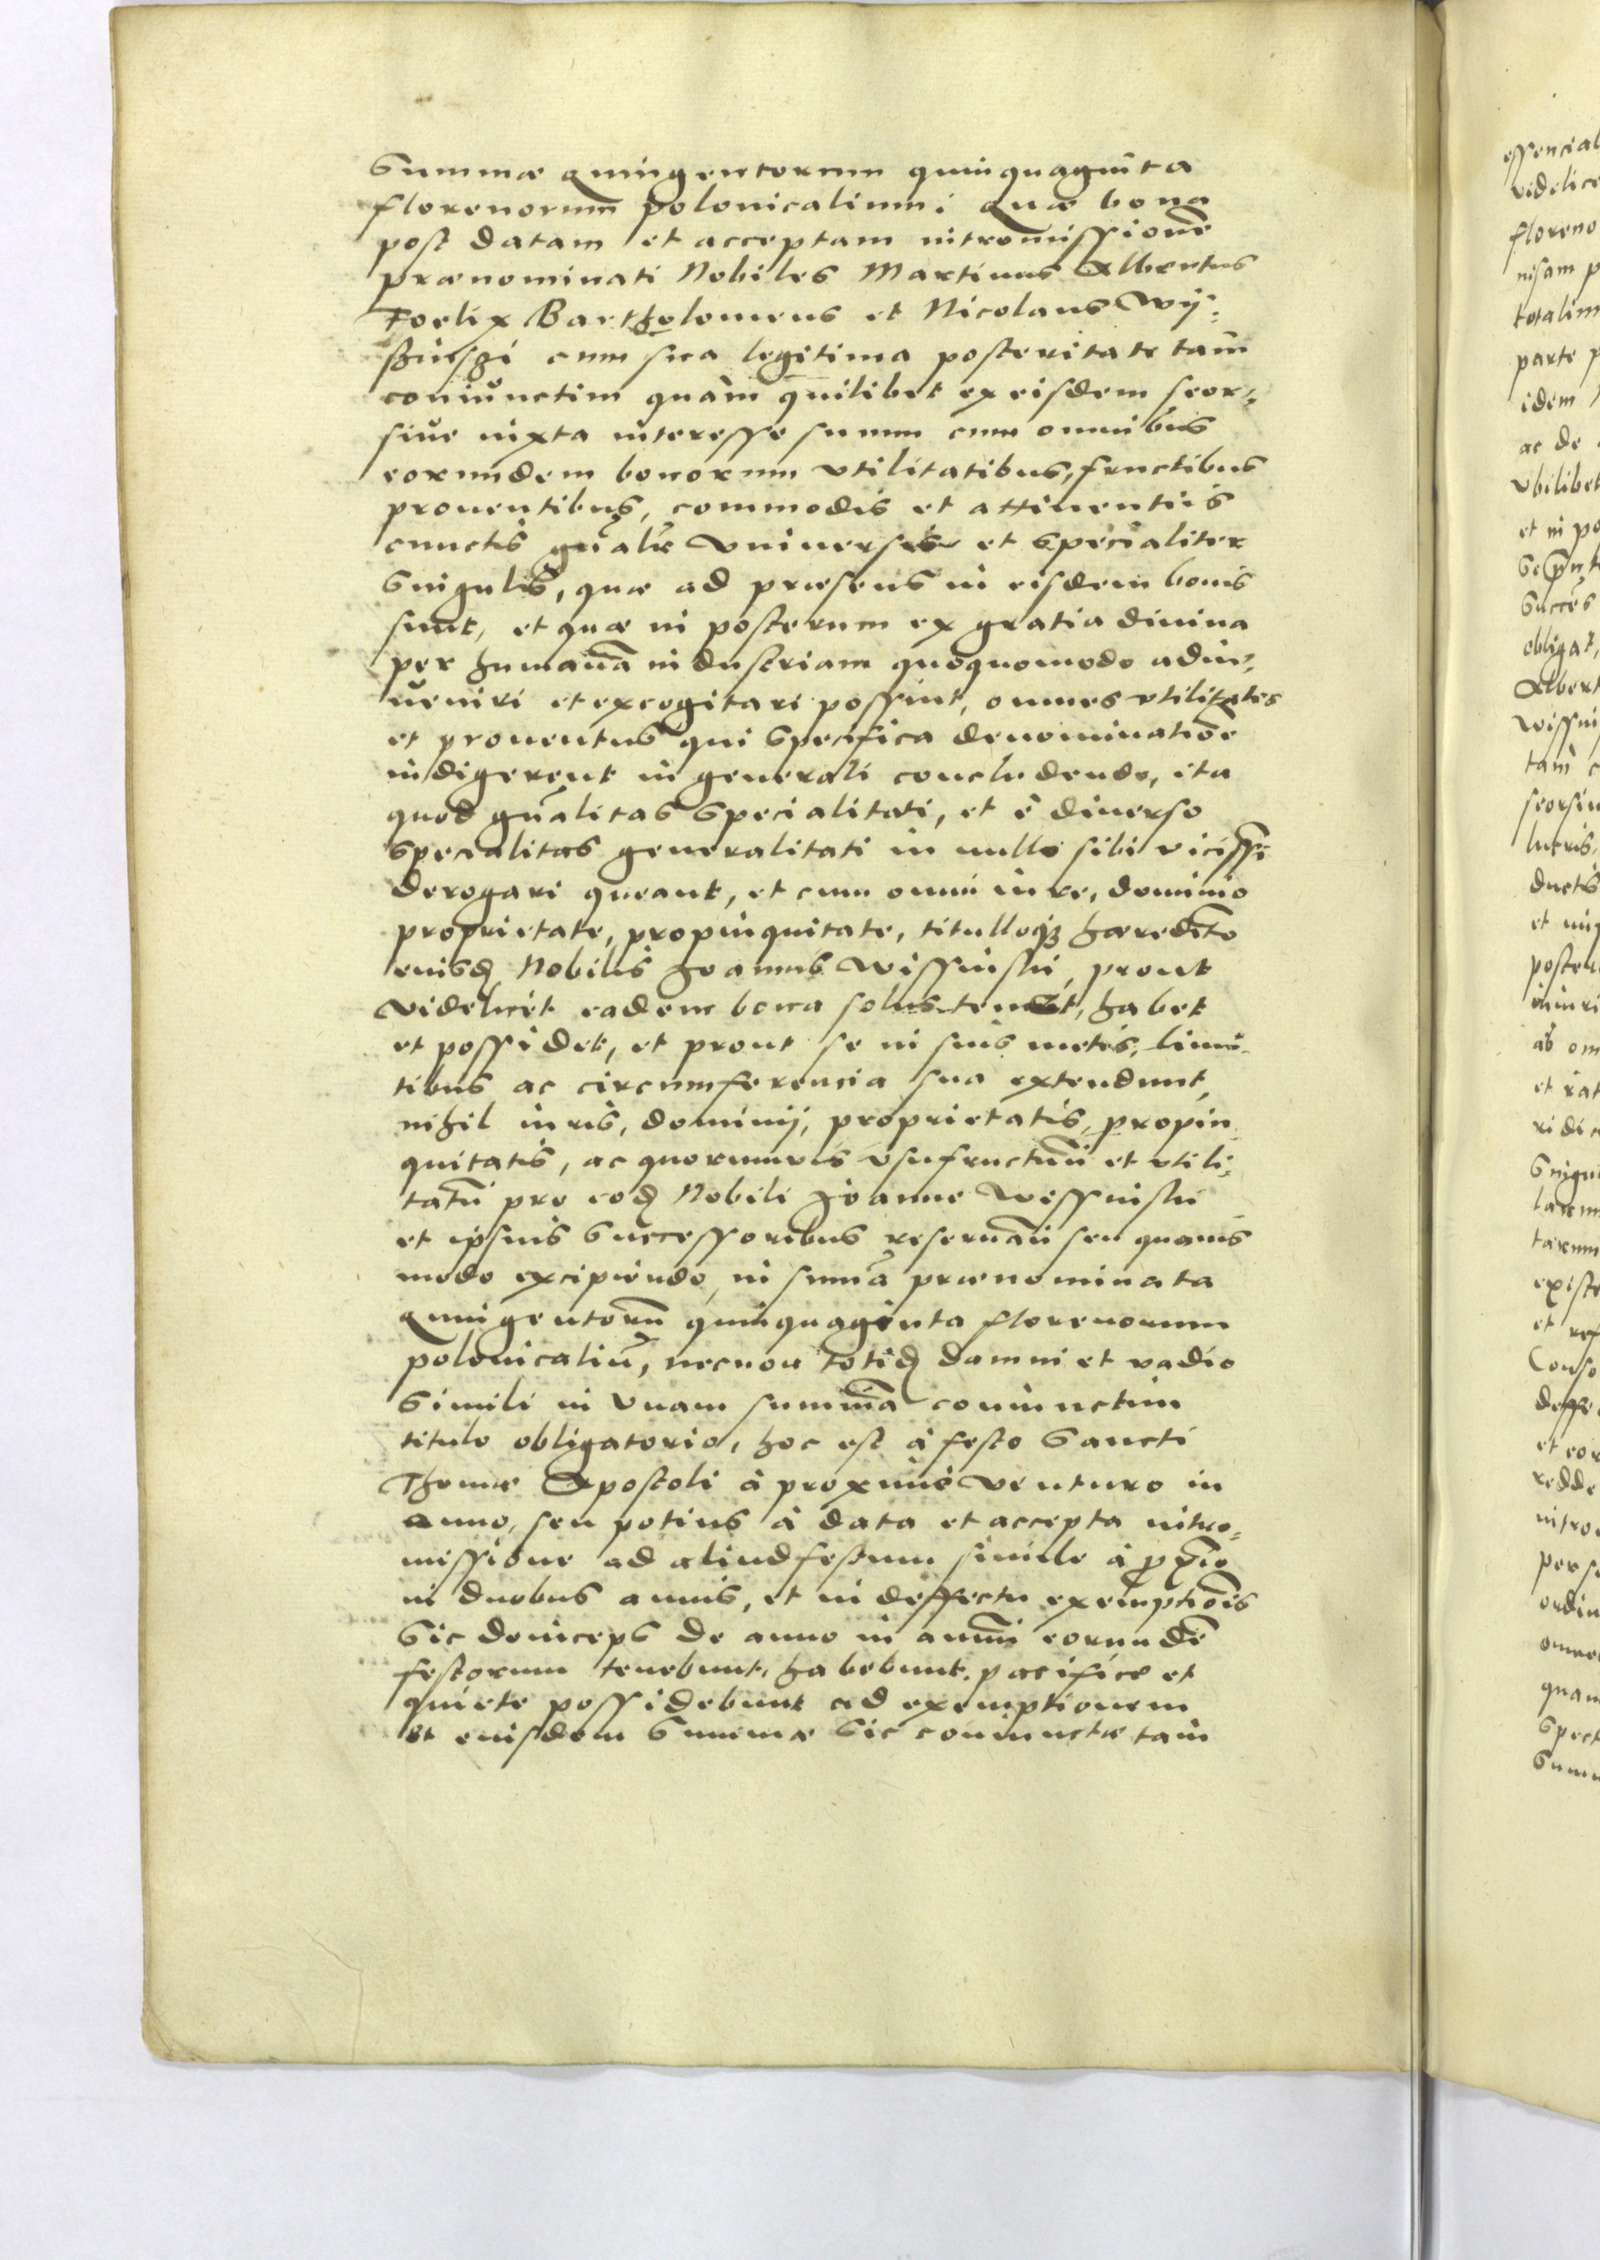 Summæ Quingentorum quinquaginta
florenorum polonicalium: Quæ bona
post datam et acceptam intromissionē
prænominati Nobiles Martinus Albertus
Foelix Bartholomeus et Nicolaus Wÿ-
cum sua legitima posteritate tam
coniunctim quàm quilibet ex eisdem seor-
sive iuxta interesse suum cum omnibus
eorundem bonorum vtilitatibus, fructibus
prouentibus, commodis et attinentiis
cunctis gn̄aliter vniuersis et specialiter
Singulis, quæ ad præsens in eisdem bonis
sunt, et quæ in posterum ex gratia diuina
per humanā industriam quoquomodo adin-
ueniri et excogitari possint, omnes vtilitates
et prouentus qui specifica denominatiōe
indigerent in generali concludendo, ita
quod gn̄alitas specialitati, et è diuerso
specialitas generalitati in nullo sibi vicissī
derogari queant, et cum omni iure, dominio
proprietate, propinquitate, titulloq₃ hæredit̄o
eiusd Nobilis Joannis Wissinski, prout
videlicet eadem bona solus tenet, habet
et possidet, et prout se in suis metis, limi-
tibus ac circumferencia sua extendunt,
nihil iuris, dominij, proprietatis, propin
quitatis, ac quorumuis vsufructuū et vtili-
tatū pro eod Nobili Joanne Wissinski
et ipsius Successoribus reseruādi seu quouis
modo excipiendo, in sum̄a prænominata
Quingentorū quinquaginta florenorum
polonicaliū, necnon totid damni et vadio
Simili in vnam summā coniunctim
titulo obligatorio, hoc est à festo Sancti
Thomæ Apostoli à proximè venturo in
anno, seu potius à data et accepta intro-
missione ad aliud festum simile à pxīo
in duobus annis, et in deffectu exemptiōis
Sic deinceps de anno in annū eorundē
festorum tenebunt, habebunt, pacifice et
quiete possidebunt ad exemptionem
et eiusdem Summæ Sic coniunctæ tam